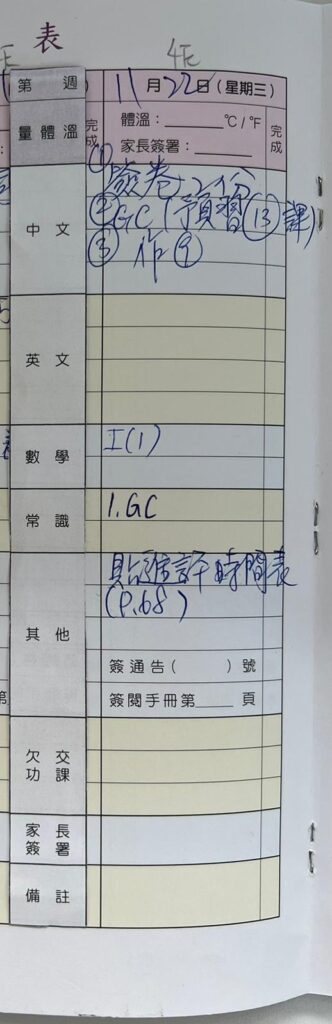 表
4E
第 週
11月22日(星期三)
量體溫
完成
體溫：______°C/°F
家長簽署：______
完成
中文
① 簽卷x2份
② GC(預習⑬課)
③ 作⑨
英文
數學
I(1)
常識
1.GC
其他
貼進評時間表
(P.68)
簽通告( )號
簽閱手冊第____頁
欠交功課
家長簽署
備註